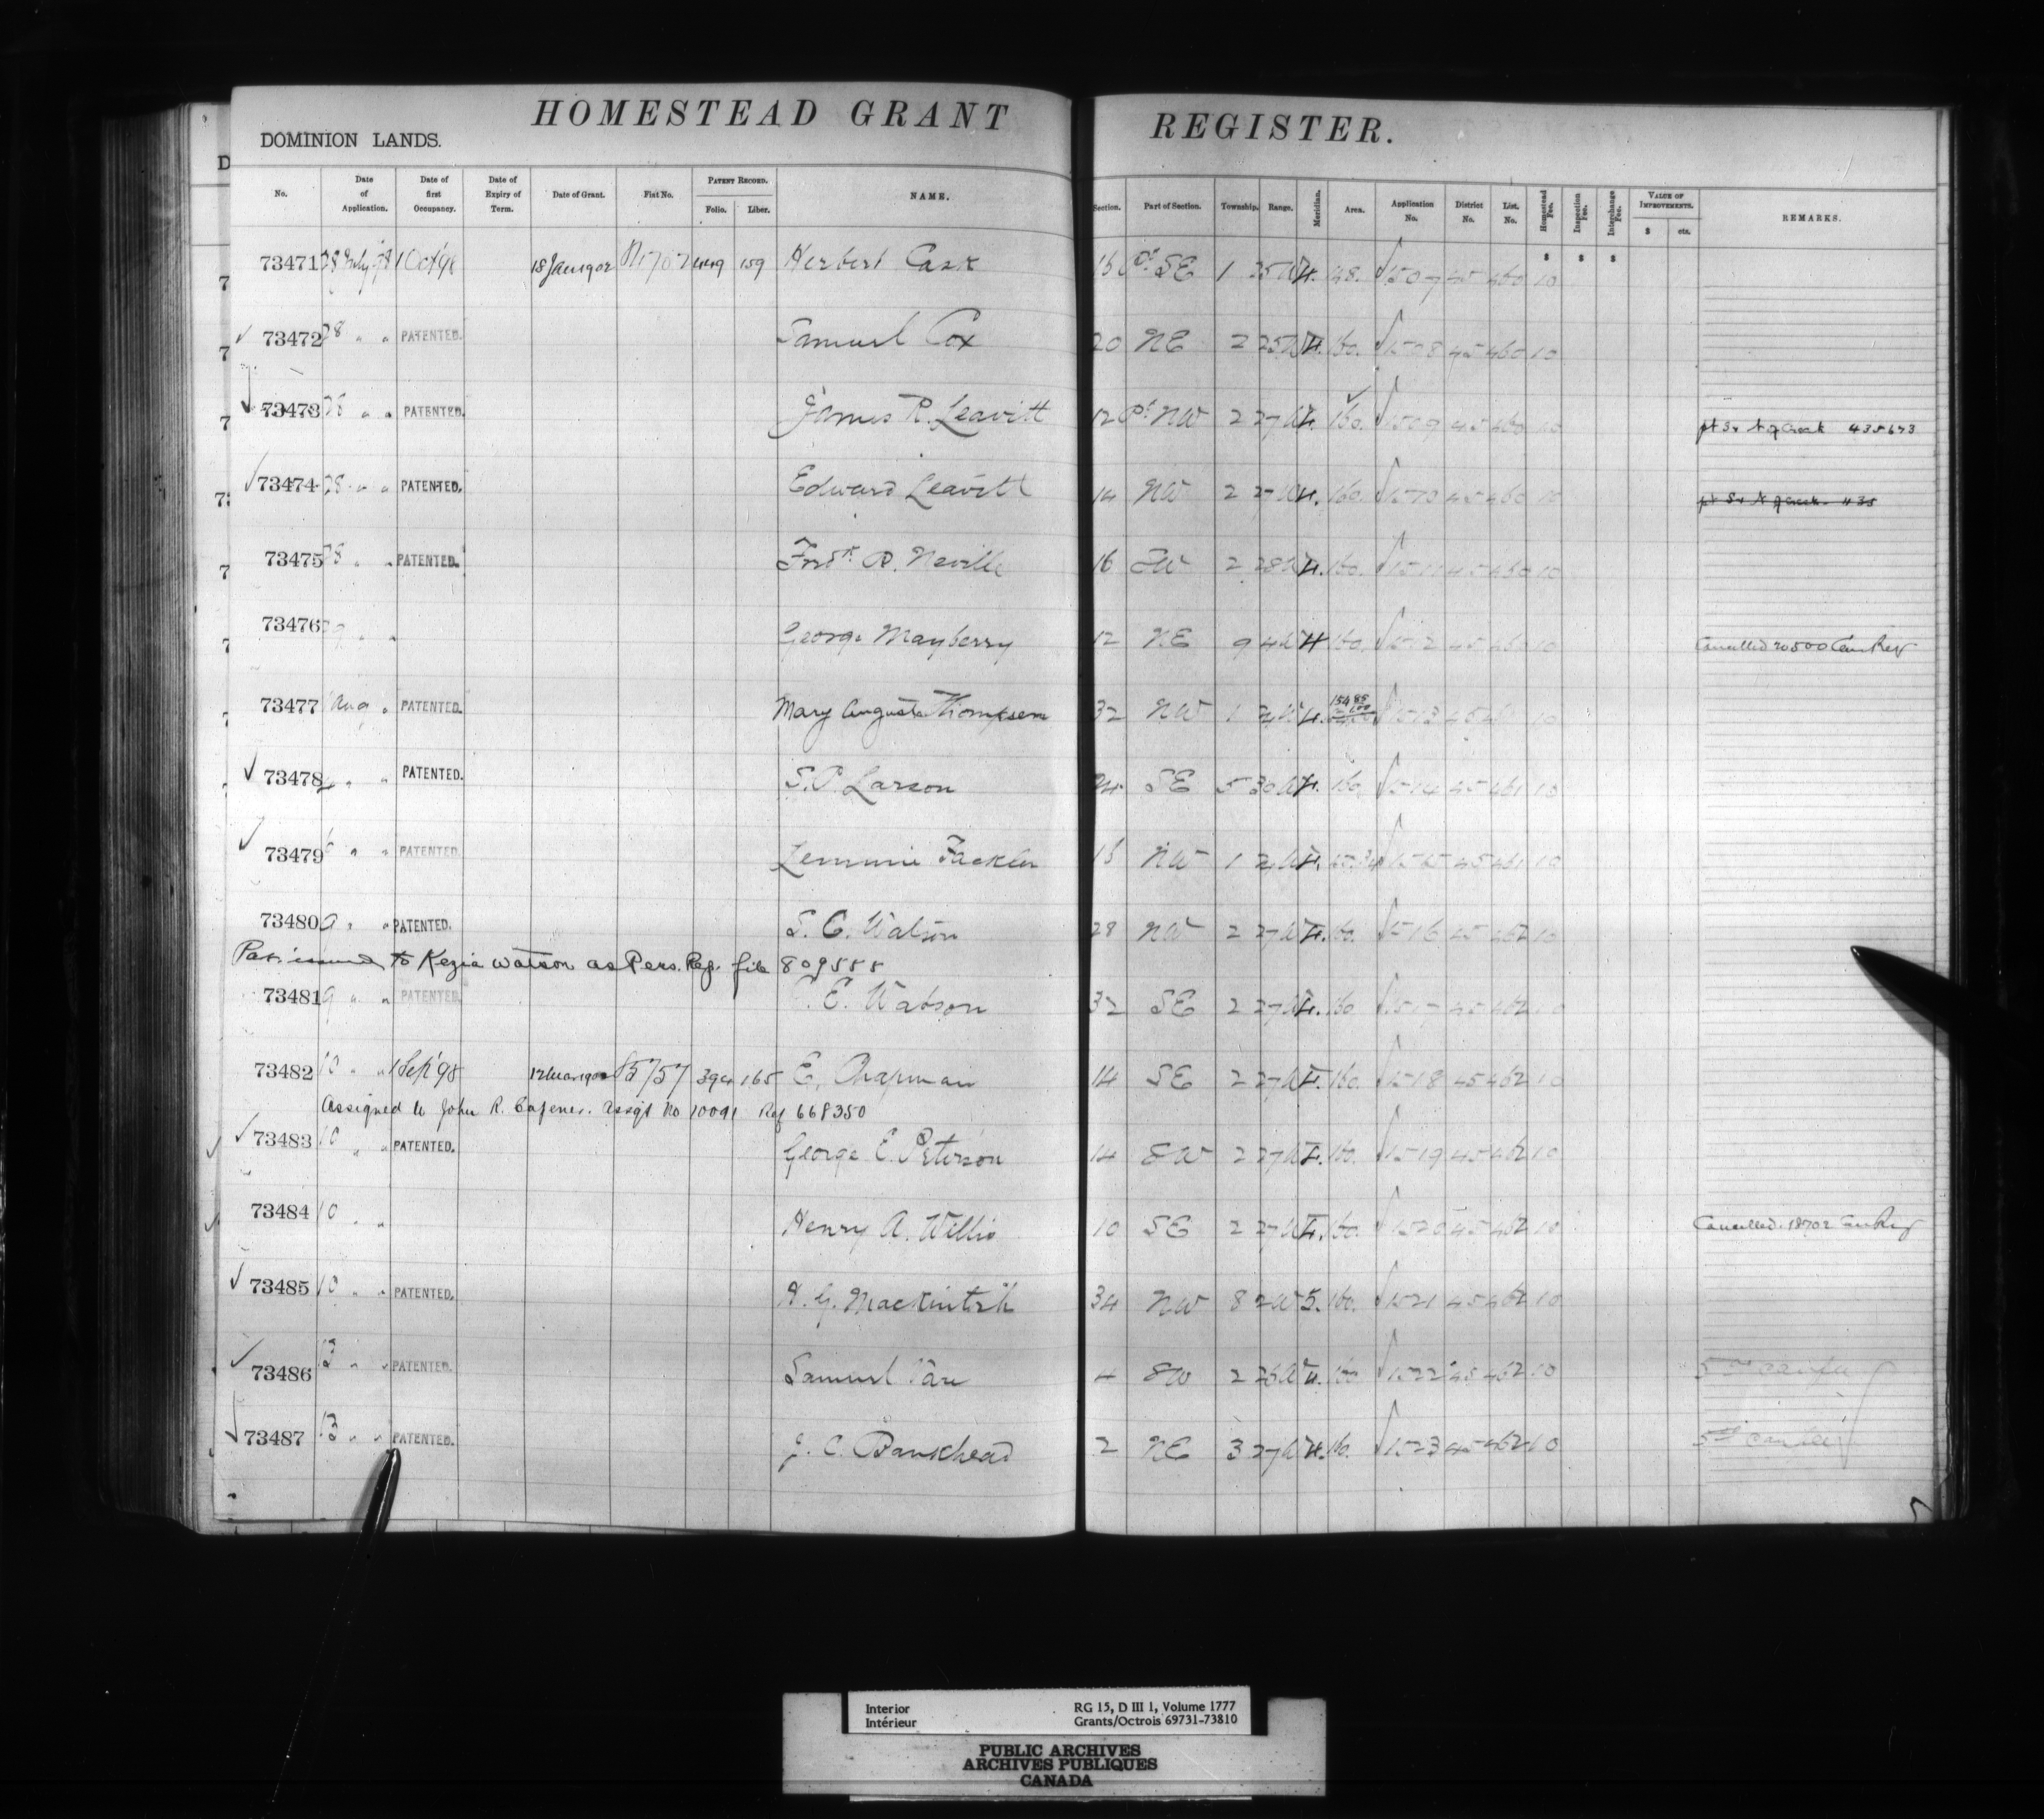 HOMESTEAD GRANT REGISTER.
DOMINION LANDS.
No. Date of Application. Date of first Occupancy. Date of Expiry of Term. Date of Grant. Fiat No. PATENT RECORD. Folio. Liber. NAME. Section. Part of Section. Township. Range. Meridian. Area. Application No. District No. List. No. Homestead Fee. Inspection Fee. Interchange Fee. VALUE OF IMPROVEMENTS. $ cts. REMARKS.
73471 28 July 98 1 Oct 98 18 Jan 1902 159 Herbert Cask 16 Pt SE 1 25 W 4. 48. 1507 45 460 10
73472 28 " " PATENTED. Samuel Cox 20 NE 2 25 W 4. 160. 1508 45 460 10
73473 28 " " PATENTED. James R. Leavitt 12 Pt NW 2 27 W 4. 160. 1509 45 460 10 435673
73474 28 " " PATENTED. Edward Leavitt 14 NW 2 27 W 4. 160. 1510 45 460 10
73475 28 " " PATENTED. Fredk R. Neville 16 SW 2 28 W 4. 160. 1511 45 460 10
73476 29 " " George Mayberry 12 NE 9 4 W 4 160. 1512 45 460 10 Cancelled 20500 Can Reg
73477 1 Aug " PATENTED. Mary Augusta Thompson 32 NW 1 W 4. 1513 45 461 10
73478 " " PATENTED. S.P. Larson 24 SE 5 30 W 4. 160. 1514 45 461 10
73479 6 " " PATENTED. Lemmie Fackler 16 NW 1 W 4. 1515 45 461 10
73480 9 " " PATENTED. S. C. Watson 28 NW 2 27 W 4. 160. 1516 45 462 10
Pat. issued to Kezia Watson as Pers. Rep. file 809588
73481 9 " " PATENTED. E. Watson 32 SE 2 27 W 4. 160 1517 45 462 10
73482 10 " " 1 Sep '98 85757 394 165 E. Chapman 14 SE 2 27 W 4. 160. 1518 45 462 10
Assigned to John R. assgt No 10091 Ref 668350
73483 10 " " PATENTED. George E. Peterson 14 SW 2 27 W 4. 160. 1519 45 462 10
73484 10 " " Henry A. Willis 10 SE 2 27 W 4. 160. 1520 45 462 10 Cancelled. 18702 Can Reg
73485 10 " " PATENTED. H. G. Mackintosh 34 NW 8 2 W 5. 160. 1521 45 462 10
73486 13 " " PATENTED. Samuel 4 SW 2 26 W 4. 160 1522 45 462 10
73487 13 " " PATENTED. J. C. Bankhead 2 NE 3 27 W 4. 160. 1523 45 462 10
Interior RG 15, D III 1, Volume 1777
Intérieur Grants/Octrois 69731-73810
PUBLIC ARCHIVES
ARCHIVES PUBLIQUES
CANADA